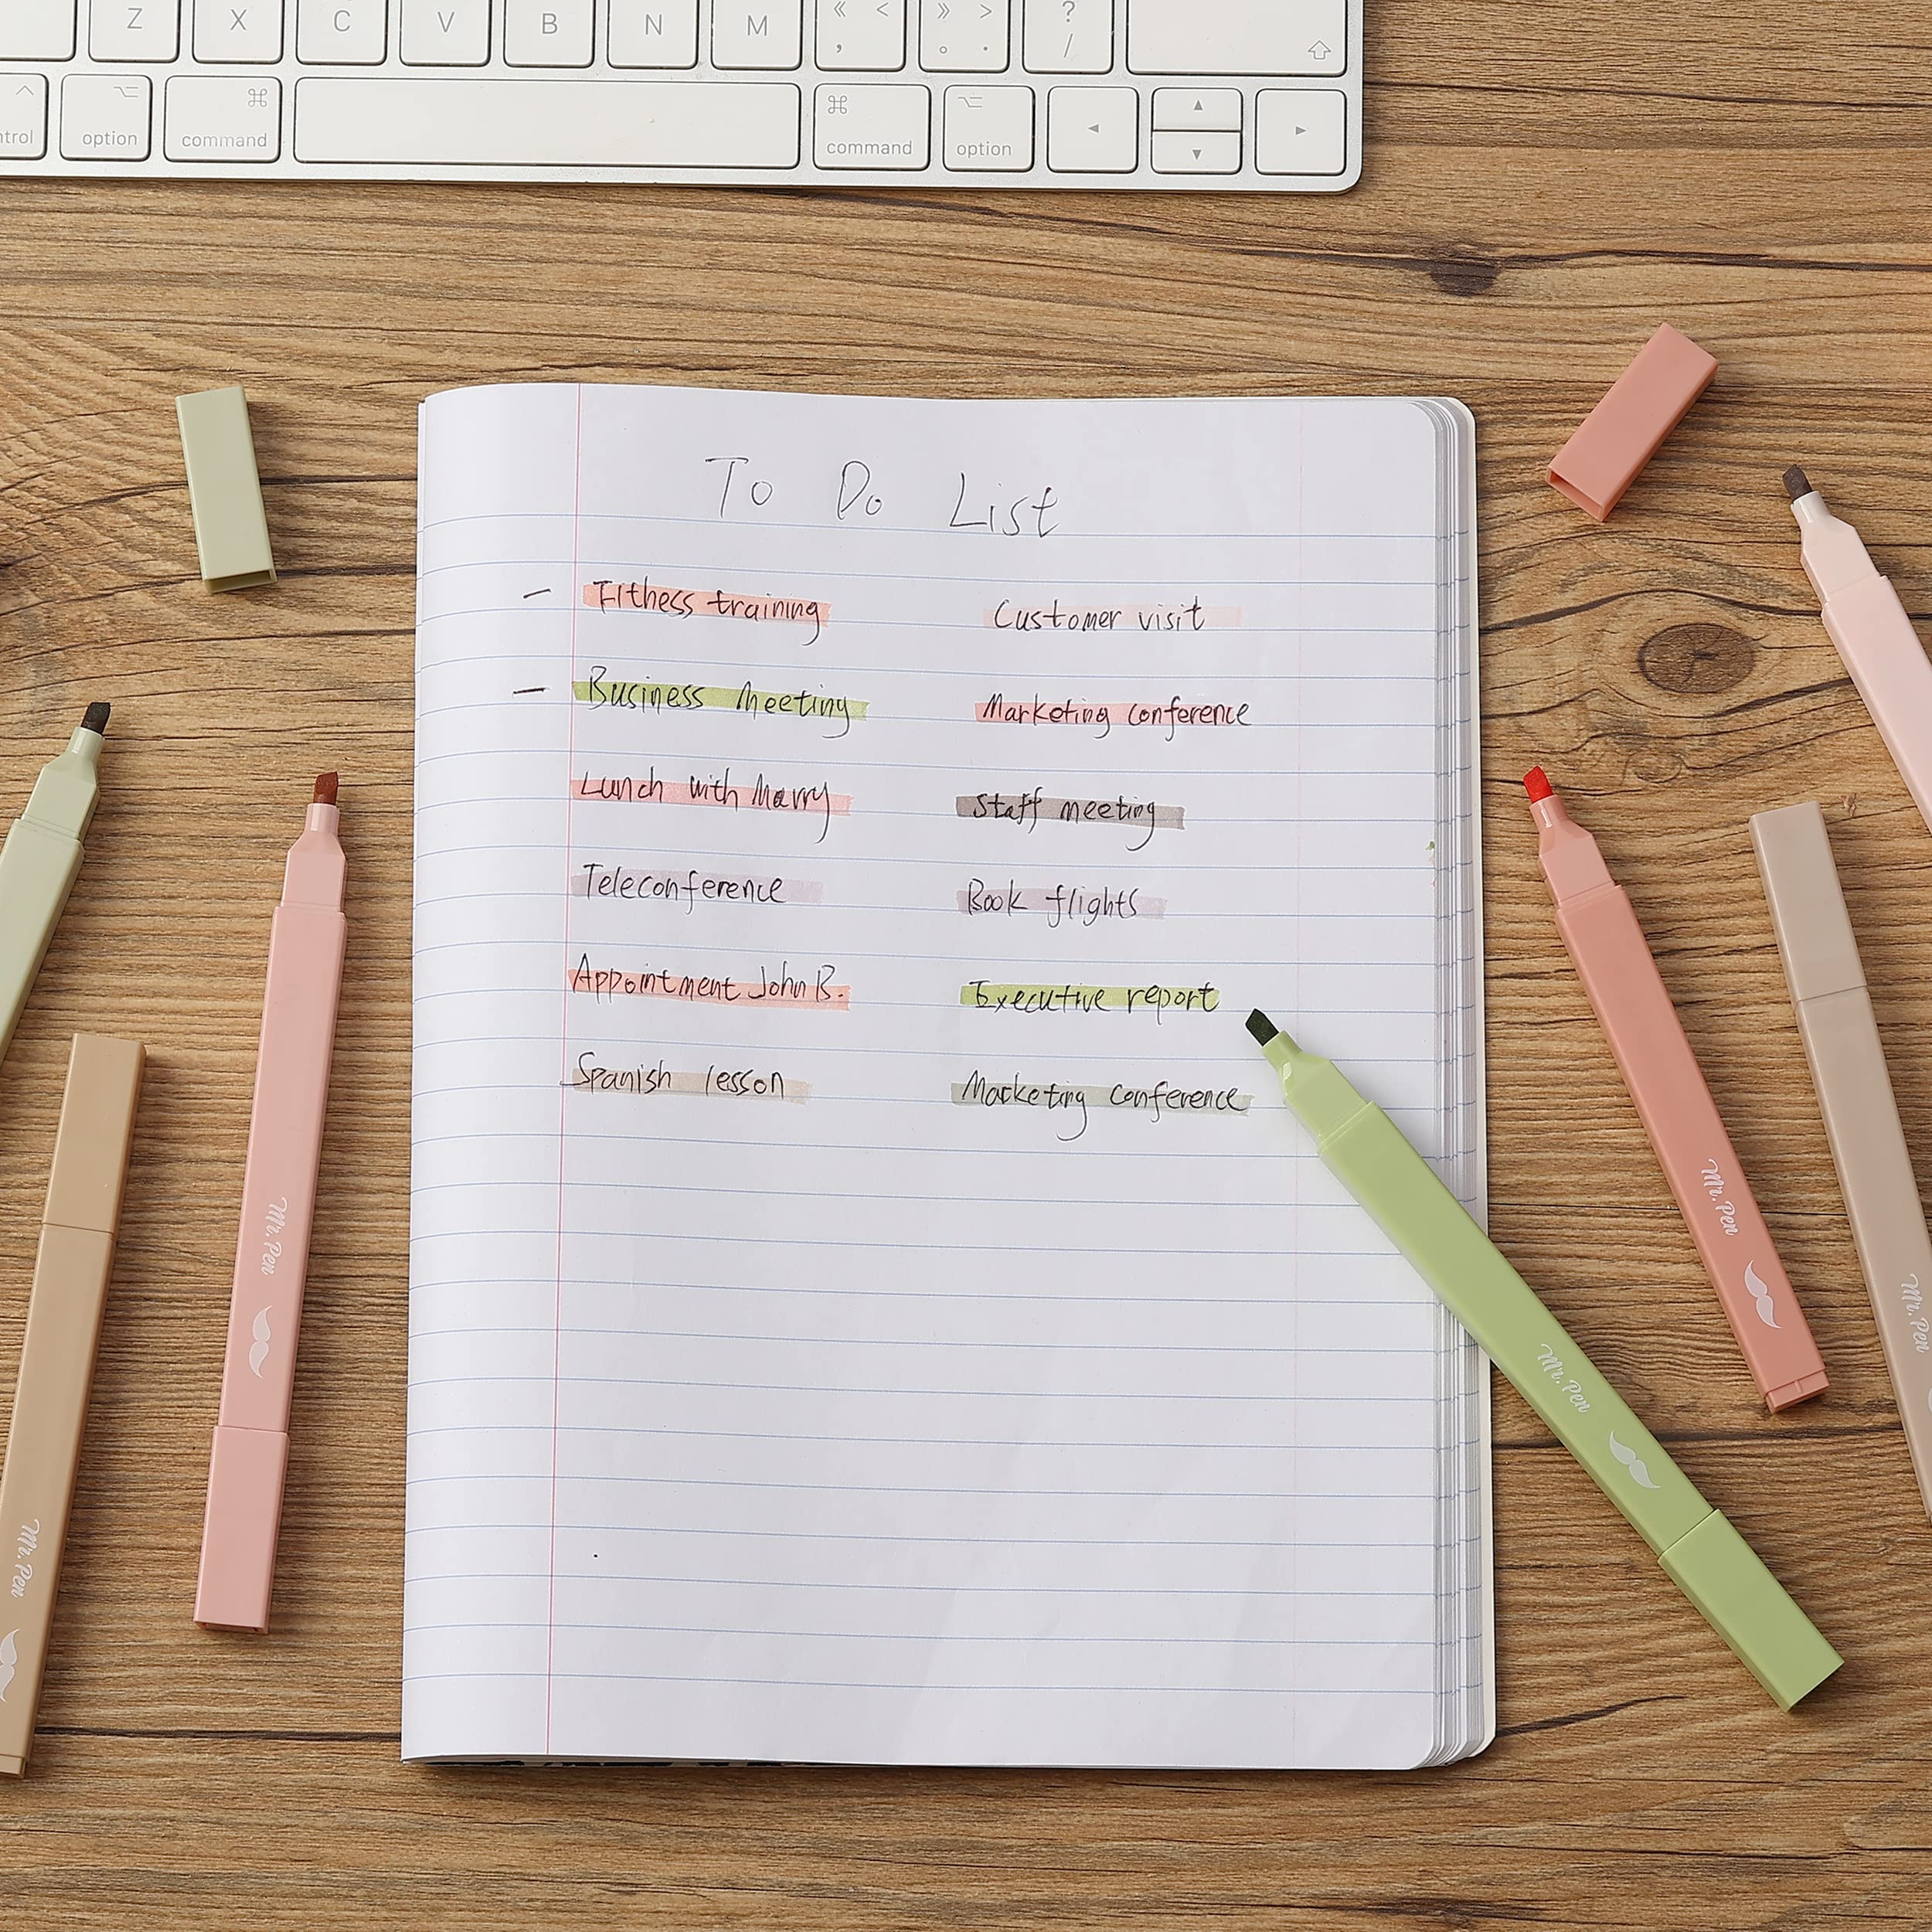 Z X C V B N M « < , » > . ? /
option command command option
To Do List
– Fithess training Customer visit
– Business Meeting Marketing conference
Lunch with Marry Staff meeting
Teleconference Book flights
Appointment John B. Executive report
Spanish lesson Marketing Conference
Mr. Pen
Mr. Pen
Mr. Pen
Mr. Pen
Mr. Pen